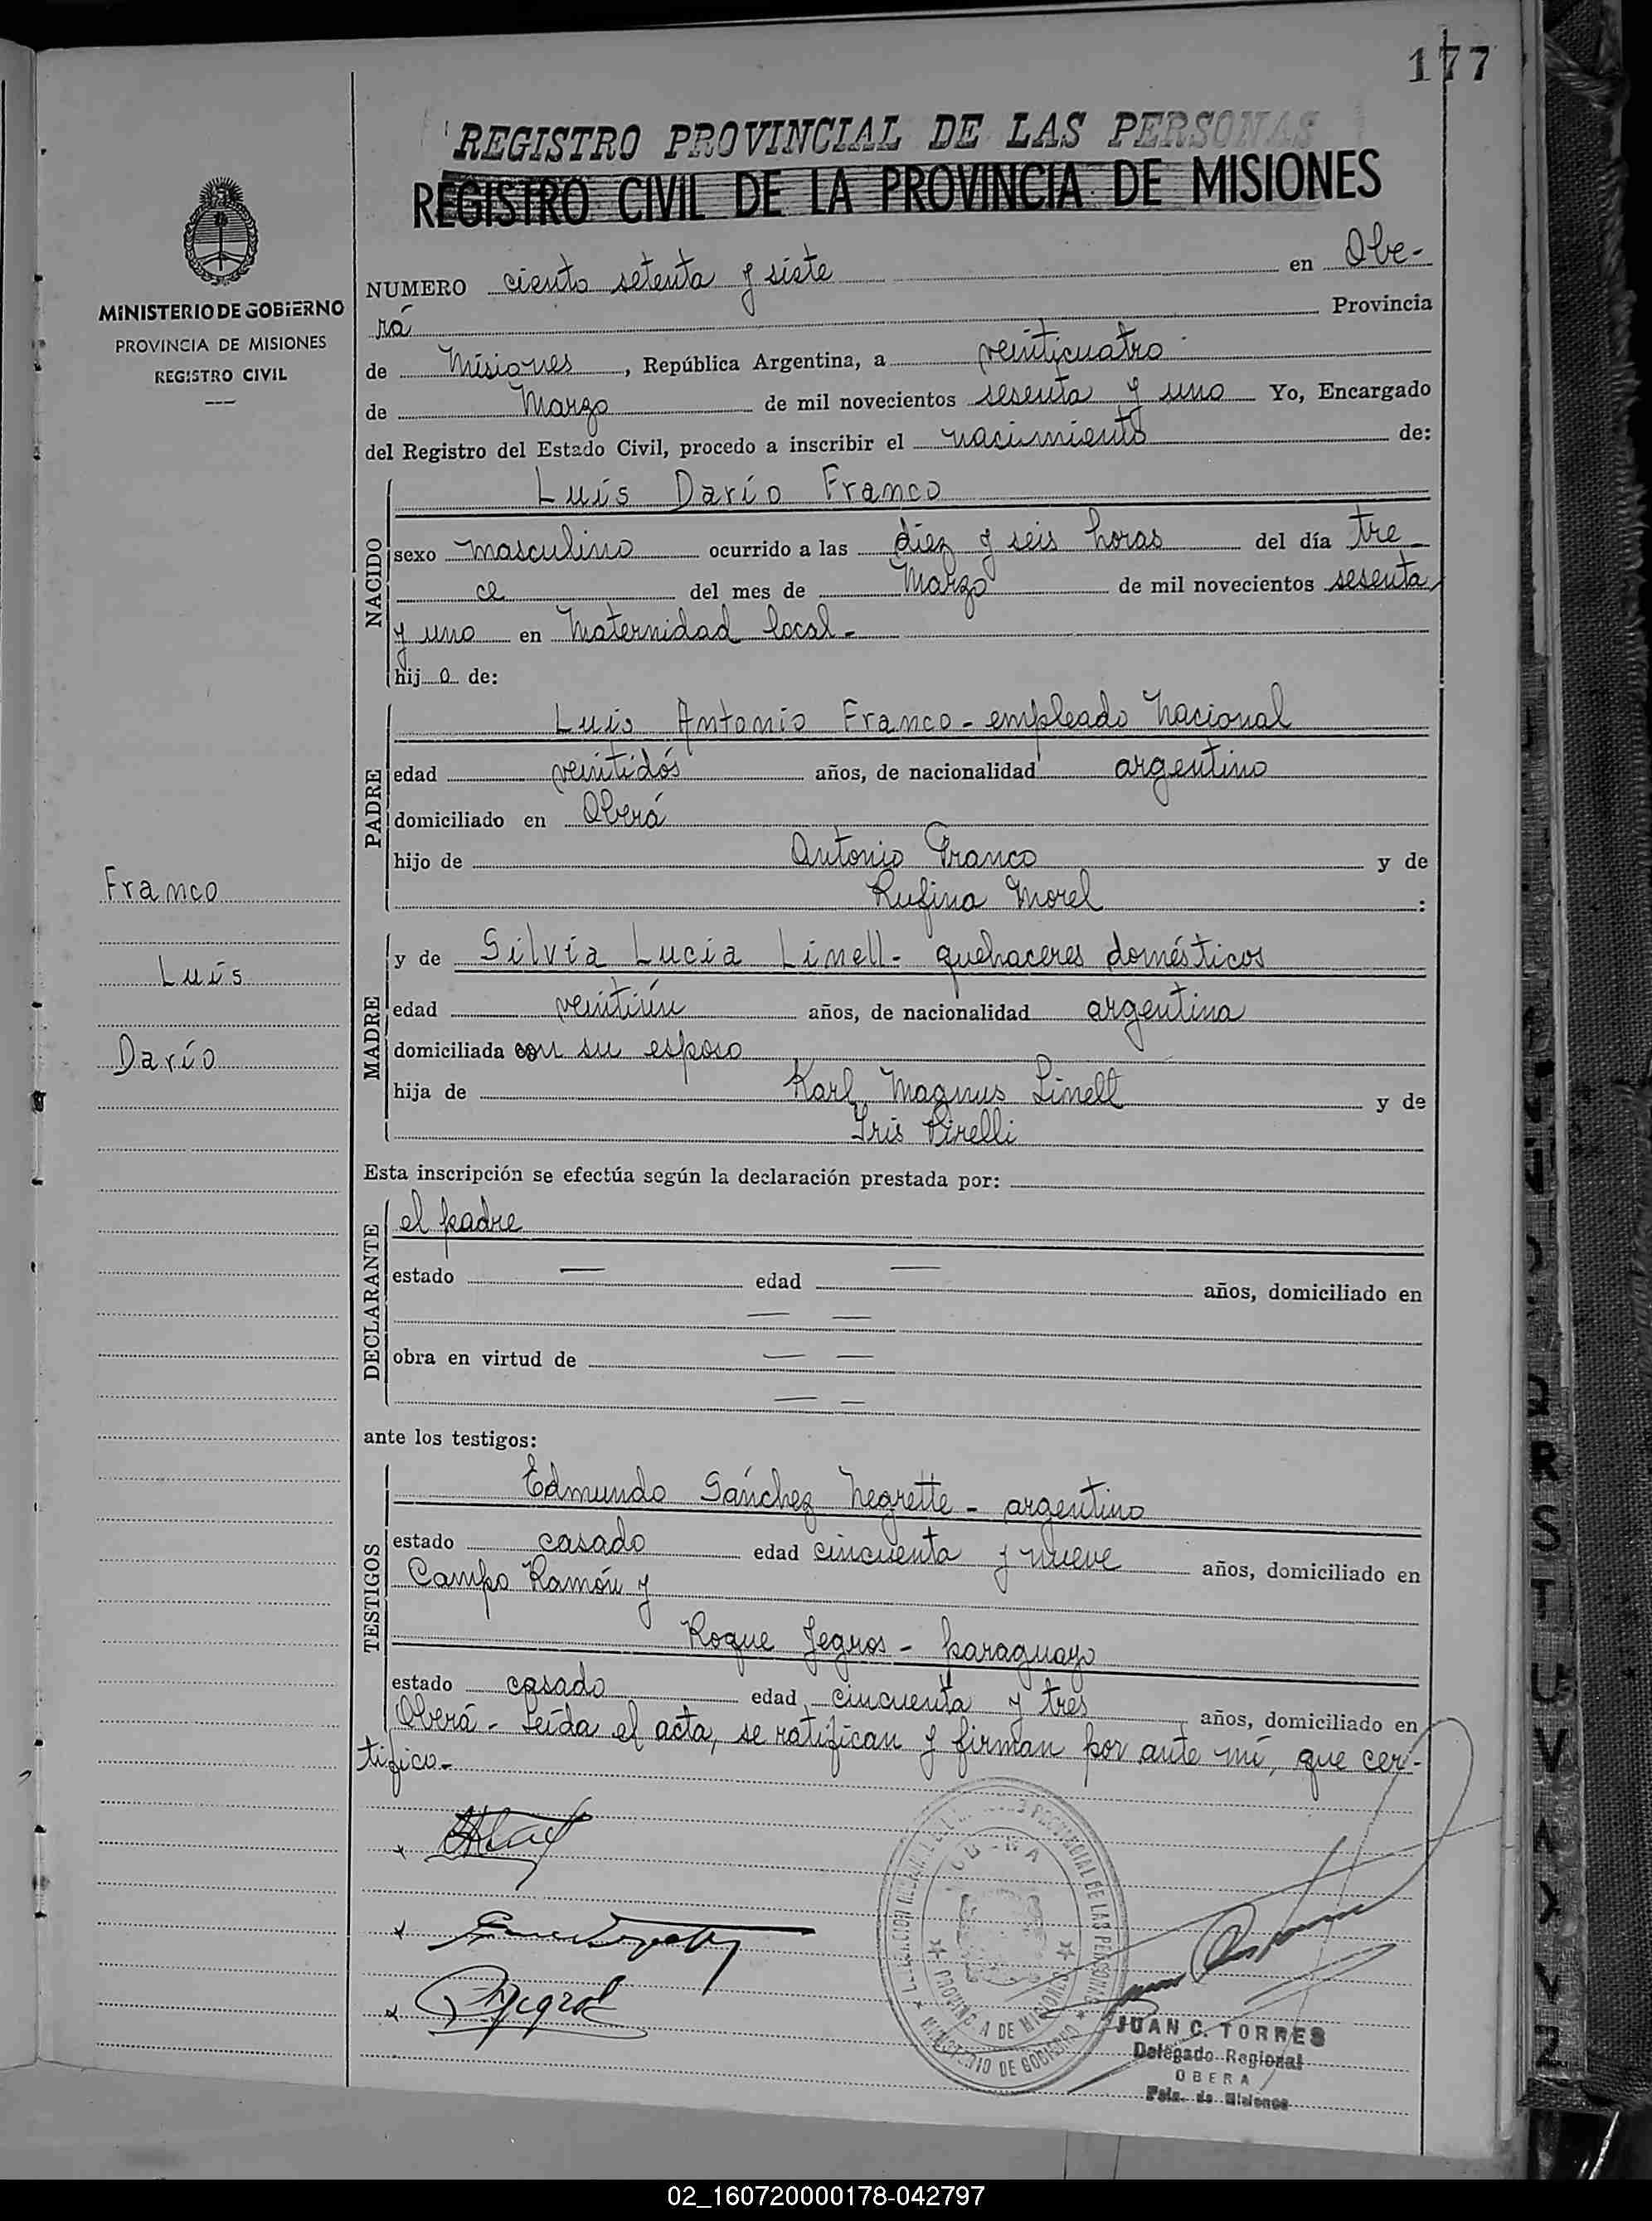 177
REGISTRO PROVINCIAL DE LAS PERSONAS
REGISTRO CIVIL DE LA PROVINCIA DE MISIONES
MINISTERIO DE GOBIERNO
PROVINCIA DE MISIONES
REGISTRO CIVIL
NUMERO ciento setenta y siete en Obe-
rá Provincia
de Misiones, República Argentina, a veinticuatro
de Marzo de mil novecientos sesenta y uno Yo, Encargado
del Registro del Estado Civil, procedo a inscribir el nacimiento de:
NACIDO
Luis Darío Franco
sexo masculino ocurrido a las diez y seis horas del día tre
ce del mes de Marzo de mil novecientos sesenta
y uno en Maternidad local-
hijo de:
PADRE
Luis Antonio Franco - empleado Nacional
edad veintidós años, de nacionalidad argentino
domiciliado en Oberá
hijo de Antonio Franco y de
Rufina Morel :
Franco
Luis
Darío
MADRE
y de Silvia Lucia Linell- quehaceres domésticos
edad veintiún años, de nacionalidad argentina
domiciliada con su esposo
hija de Karl Magnus Linell y de
Iris Pirelli
Esta inscripción se efectúa según la declaración prestada por:
DECLARANTE
el padre
estado — edad — años, domiciliado en
— —
obra en virtud de — —
— —
ante los testigos:
TESTIGOS
Edmundo Sánchez Negrette - argentino
estado casado edad cincuenta y nueve años, domiciliado en
Campo Ramón y
Roque Jegros - paraguayo
estado casado edad cincuenta y tres años, domiciliado en
Oberá - Leída el acta, se ratifican y firman por ante mí, que cer-
tifico.-
PROVINCIAL DE LAS PERSONAS
PROVINCIA DE MISIONES
MINISTERIO DE GOBIERNO
JUAN C. TORRES
Delegado Regional
OBERA
Pcia. de Misiones
R
S
T
U
V
02_160720000178-042797